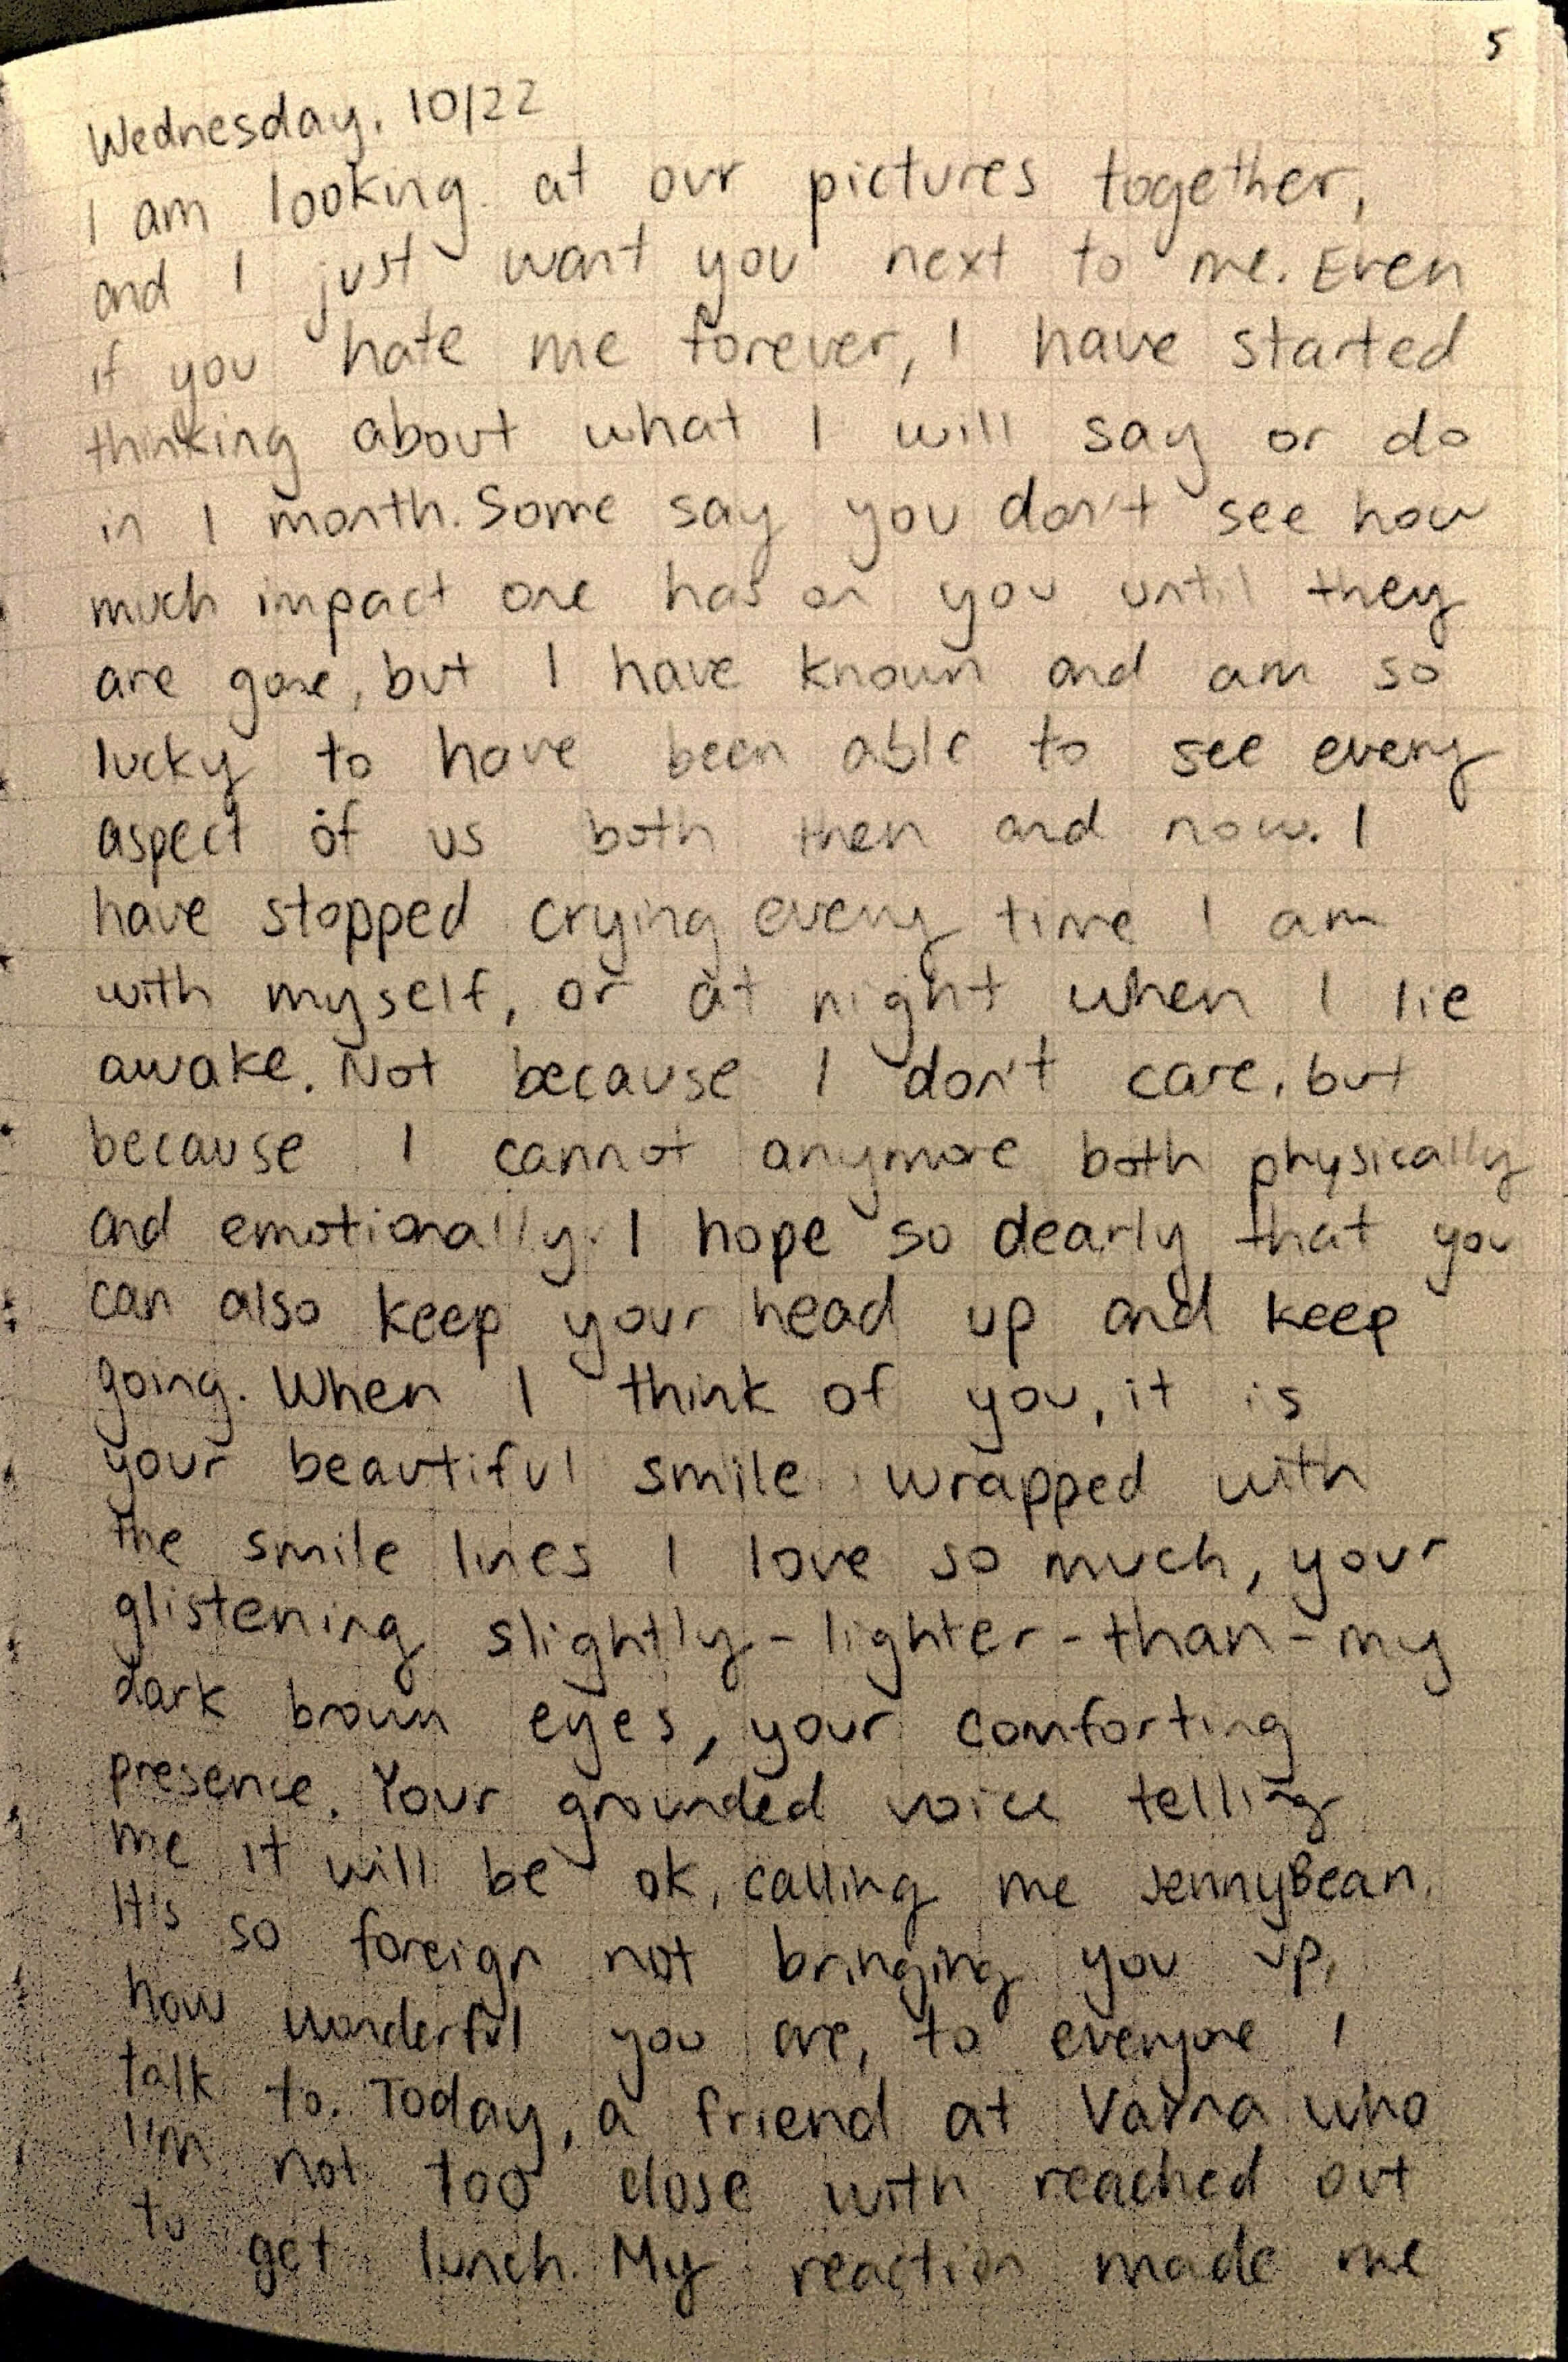 5
Wednesday, 10/22
I am looking at our pictures together,
and I just want you next to me. Even
if you hate me forever, I have started
thinking about what I will say or do
in 1 month. Some say you don't see how
much impact one has on you until they
are gone, but I have known and am so
lucky to have been able to see every
aspect of us both then and now. I
have stopped crying every time I am
with myself, or at night when I lie
awake. Not because I don't care, but
because I cannot anymore both physically
and emotionally. I hope so dearly that you
can also keep your head up and keep
going. When I think of you, it is
your beautiful smile wrapped with
the smile lines I love so much, your
glistening slightly-lighter-than-my
dark brown eyes, your comforting
presence. Your grounded voice telling
me it will be ok, calling me JennyBean.
It's so foreign not bringing you up,
how wonderful you are, to everyone I
talk to. Today, a friend at who
I'm not too close with reached out
to get lunch. My reaction made me